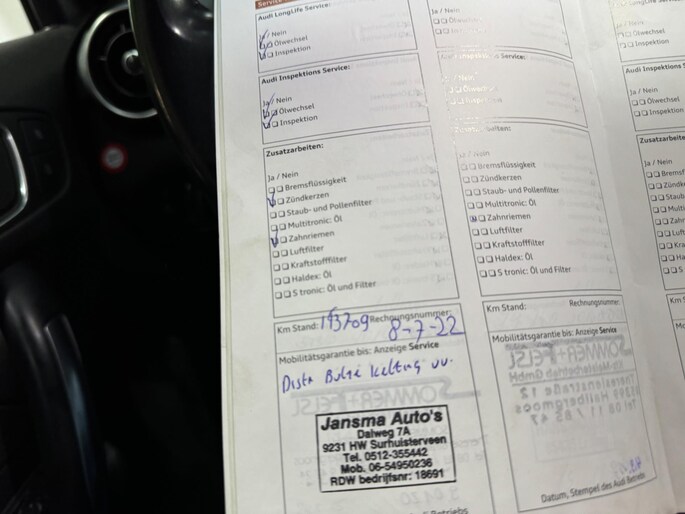 Service
Audi LongLife Service:
Ja / Nein
Ölwechsel
Inspektion
Audi Inspektions Service:
Ja / Nein
Ölwechsel
Inspektion
Zusatzarbeiten:
Ja / Nein
Bremsflüssigkeit
Zündkerzen
Staub- und Pollenfilter
Multitronic: Öl
Zahnriemen
Luftfilter
Kraftstofffilter
Haldex: Öl
S tronic: Öl und Filter
Km Stand: 193709 Rechnungsnummer:
8-7-22
Mobilitätsgarantie bis: Anzeige Service
Jansma Auto's
Dalweg 7A
9231 HW Surhuisterveen
Tel. 0512-355442
Mob. 06-54950236
RDW bedrijfsnr: 18691
Ja / Nein
Ölwechsel
Service:
Ölwechsel
Ja / Nein
Bremsflüssigkeit
Zündkerzen
Staub- und Pollenfilter
Multitronic: Öl
Zahnriemen
Luftfilter
Kraftstofffilter
Haldex: Öl
S tronic: Öl und Filter
Km Stand: Rechnungsnummer:
Mobilitätsgarantie bis: Anzeige Service
Datum, Stempel des Audi Betriebs
Ja / Nein
Ölwechsel
Inspektion
Audi Inspektions S
Ja / Nein
Ölwechsel
Inspektion
Zusatzarbeiten:
Ja / Nein
Bremsf
Zündk
Staub-
Multit
Zahnr
Luftfil
Krafts
Halde
S tro
Km Stand: